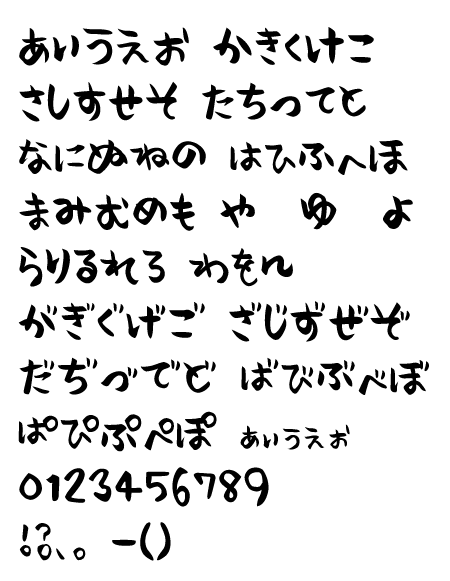 あいうえお かきくけこ
さしすせそ たちつてと
なにぬねの はひふへほ
まみむめも や ゆ よ
らりるれろ わをん
がぎぐげご ざじずぜぞ
だぢづでど ばびぶべぼ
ぱぴぷぺぽ ぁぃぅぇぉ
0123456789
!?。、。ー()